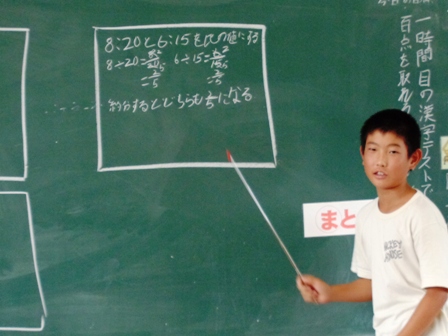 8:20と6:15を比の値に
8÷20=8/20 6÷15=6/15
=2/5 =2/5
約分するとどちらも2/5になる
一時間目の漢字テストで
百点を取れ
まと